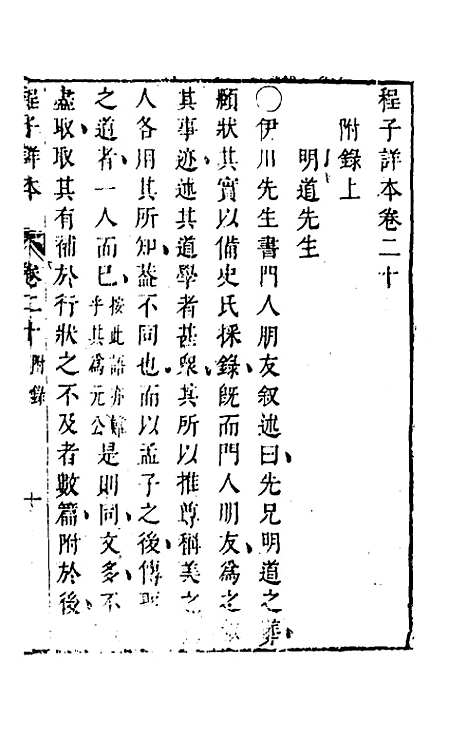 程子詳本卷二十
附錄上
明道先生
〇伊川先生書門人朋友叙述曰先兄明道之葬
願狀其實以備史氏採錄旣而門人朋友爲之
其事迹述其道學者甚衆其所以推尊稱美之
人各用其所知葢不同也而以孟子之後傳聖
之道者一人而已按此語亦
乎其爲元公是則同文多不
盡取取其有補於行狀之不及者數篇附於後
程子詳本 卷二十 附錄 十